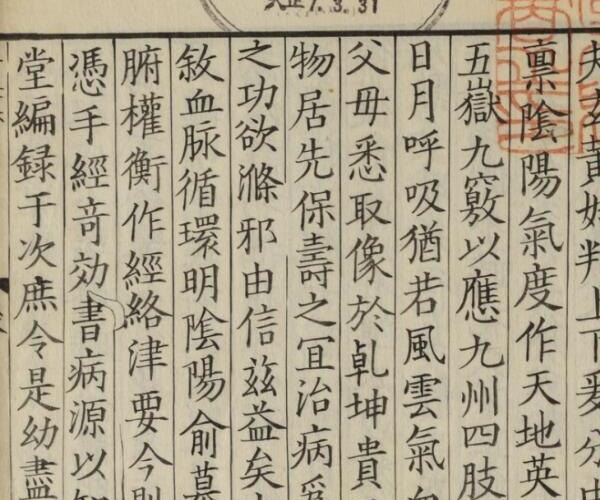 大正7.3.31
夫玄黃始判上下爰分
稟陰陽氣度作天地英
五嶽九竅以應九州四肢
日月呼吸猶若風雲氣
父母悉取像於乹坤貴
物居先保壽之冝治病
之功欲滌邪由信兹益矣
敘血脉循環明隂陽俞募
腑權衡作經絡津要今
憑手經竒効書病源以
堂編録于次庶令是幼盡